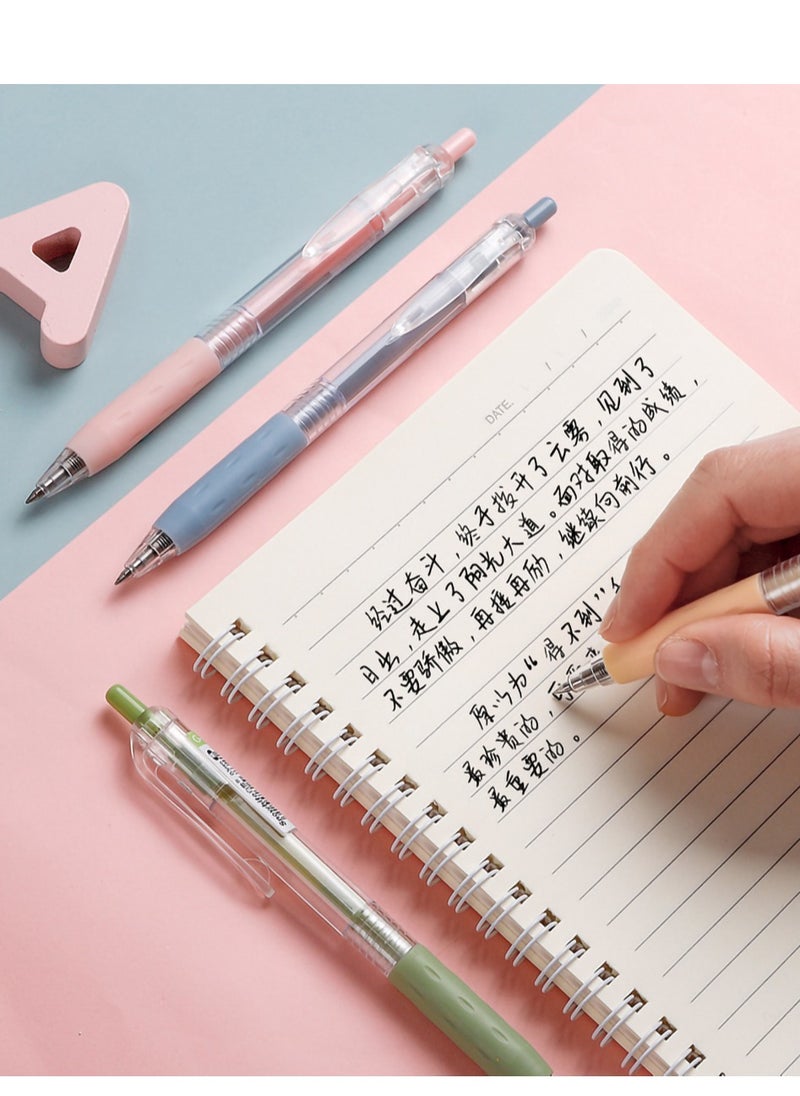 DATE
经过奋斗，终于拨开了云雾，见到了
日出，走上了阳光大道。面对取得的成绩，
不要骄傲，再接再励，继续向前行。
原以为“得不到”
最珍贵的，
最重要的。
A